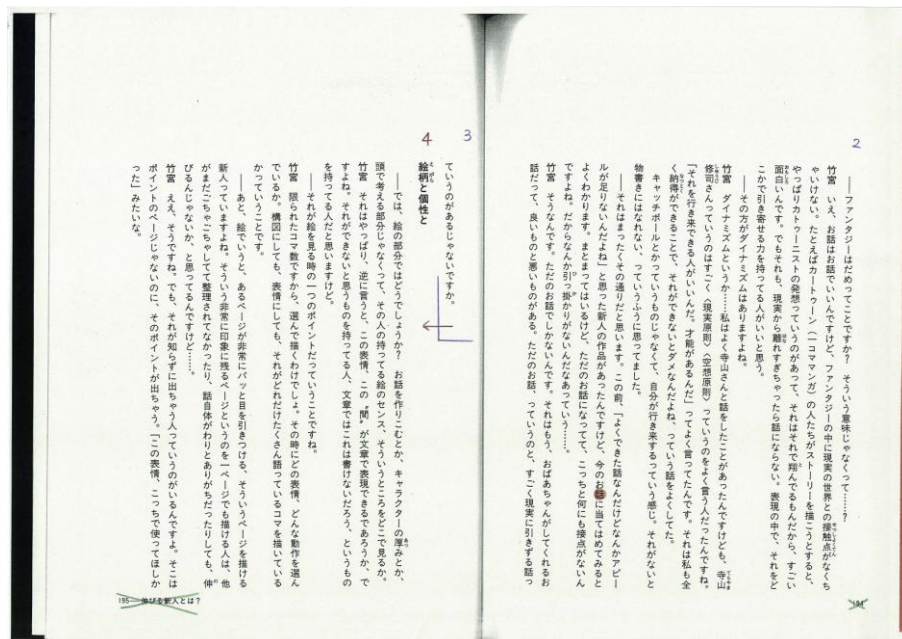 2
――ファンタジーはだめってことですか？　そういう意味じゃなくって……？
竹宮　いえ、お話はお話でいいんですけど、ファンタジーの中に現実の世界との接触点がなくち
ゃいけない。たとえばカートゥーン（一コママンガ）の人たちがストーリーを描こうとすると、
やっぱりカトゥーニストの発想っていうのがあって、それはそれで翔んでるもんだから、すごい
面白いんです。でもそれも、現実から離れすぎちゃったら話にならない。表現の中で、それをど
こかで引き寄せる力を持ってる人がいいと思う。
――その方がダイナミズムはありますよね。
竹宮　ダイナミズムというか……私はよく寺山さんと話をしたことがあったんですけども、寺山
修司さんっていうのはすごく〈現実原則〉〈空想原則〉っていうのをよく言う人だったんですね。
「それを行き来できる人がいいんだ。才能があるんだ」ってよく言ってたんです。それは私も全
く納得ができることで、それができないとダメなんだよね、っていう話をよくしてた。
キャッチボールとかっていうものじゃなくて、自分が行き来するっていう感じ。それがないと
物書きにはなれない、っていうふうに思ってました。
――それはまったくその通りだと思います。この前、「よくできた話なんだけどなんかアピー
ルが足りないんだよね」と思った新人の作品があったんですけど、今のお話に当てはめてみると
よくわかります。まとまってはいるけど、ただのお話になってて、こっちと何にも接点がないん
ですよね。だからなんか引っ掛かりがないんだなあっていう……。
竹宮　そうなんです。ただのお話でしかないんです。それはもう、おばあちゃんがしてくれるお
話だって、良いものと悪いものがある。ただのお話、っていうのと、すごく現実に引きずる話っ
194
3
ていうのがあるじゃないですか。
4
絵柄と個性と
――では、絵の部分ではどうでしょうか？　お話を作りこむとか、キャラクターの厚みとか、
頭で考える部分じゃなくって、その人の持ってる絵のセンス、そういうところをどこで見るか。
竹宮　それはやっぱり、逆に言うと、この表情、この〝間〟が文章で表現できるであろうか、で
すよね。それができないと思うものを持ってる人、文章ではこれは書けないだろう、というもの
を持ってる人だと思いますけど。
――それが絵を見る時の一つのポイントだっていうことですね。
竹宮　限られたコマ数ですから、選んで描くわけでしょ。その時にどの表情、どんな動作を選ん
でいるか。構図にしても、表情にしても、それがどれだけたくさん語っているコマを描いている
かっていうことです。
――あと、絵でいうと、あるページが非常にパッと目を引きつける、そういうページを描ける
新人っていますよね。そういう非常に印象に残るページというのを一ページでも描ける人は、他
がまだごちゃごちゃしてて整理されてなかったり、話自体がわりとありがちだったりしても、伸
びるんじゃないか、と思ってるんですけど……。
竹宮　ええ、そうですね。でも、それが知らずに出ちゃう人っていうのがいるんですよ。そこは
ポイントのページじゃないのに、そのポイントが出ちゃう。「この表情、こっちで使ってほしか
った」みたいな。
195――伸びる新人とは？